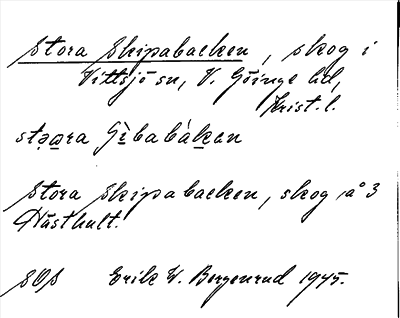 Stora Skipabacken, skog i
Vittsjö sn, V. Göinge hd,
Krist. l.
staara Gèbabàkan
Stora Skipabacken, skog å 3
Hästhult.
SOS Erik W. Bergenrud 1945.